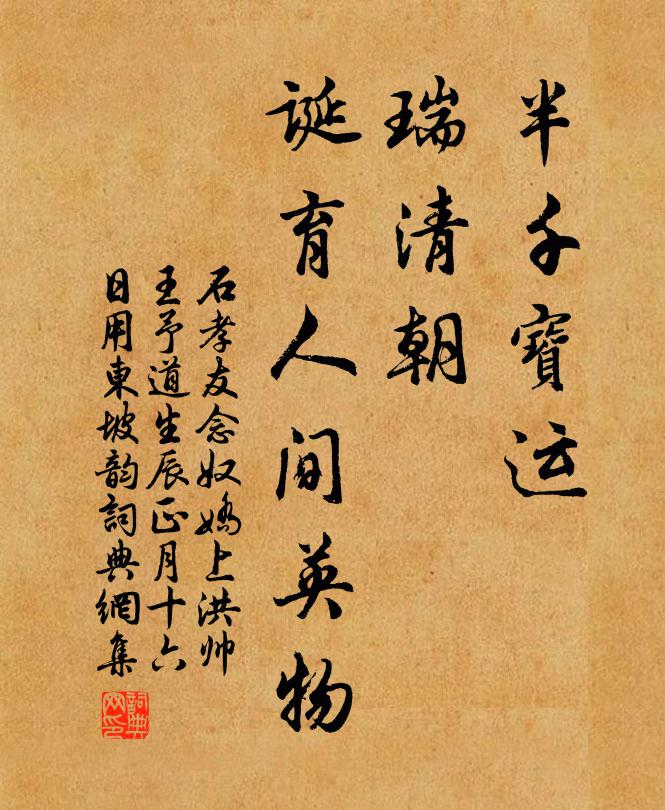 半千寶运
瑞清朝
诞育人间英物
石孝友念奴嬌上洪帅
王予道生辰正月十六
日用東坡韵詞典網集
詞典
网印